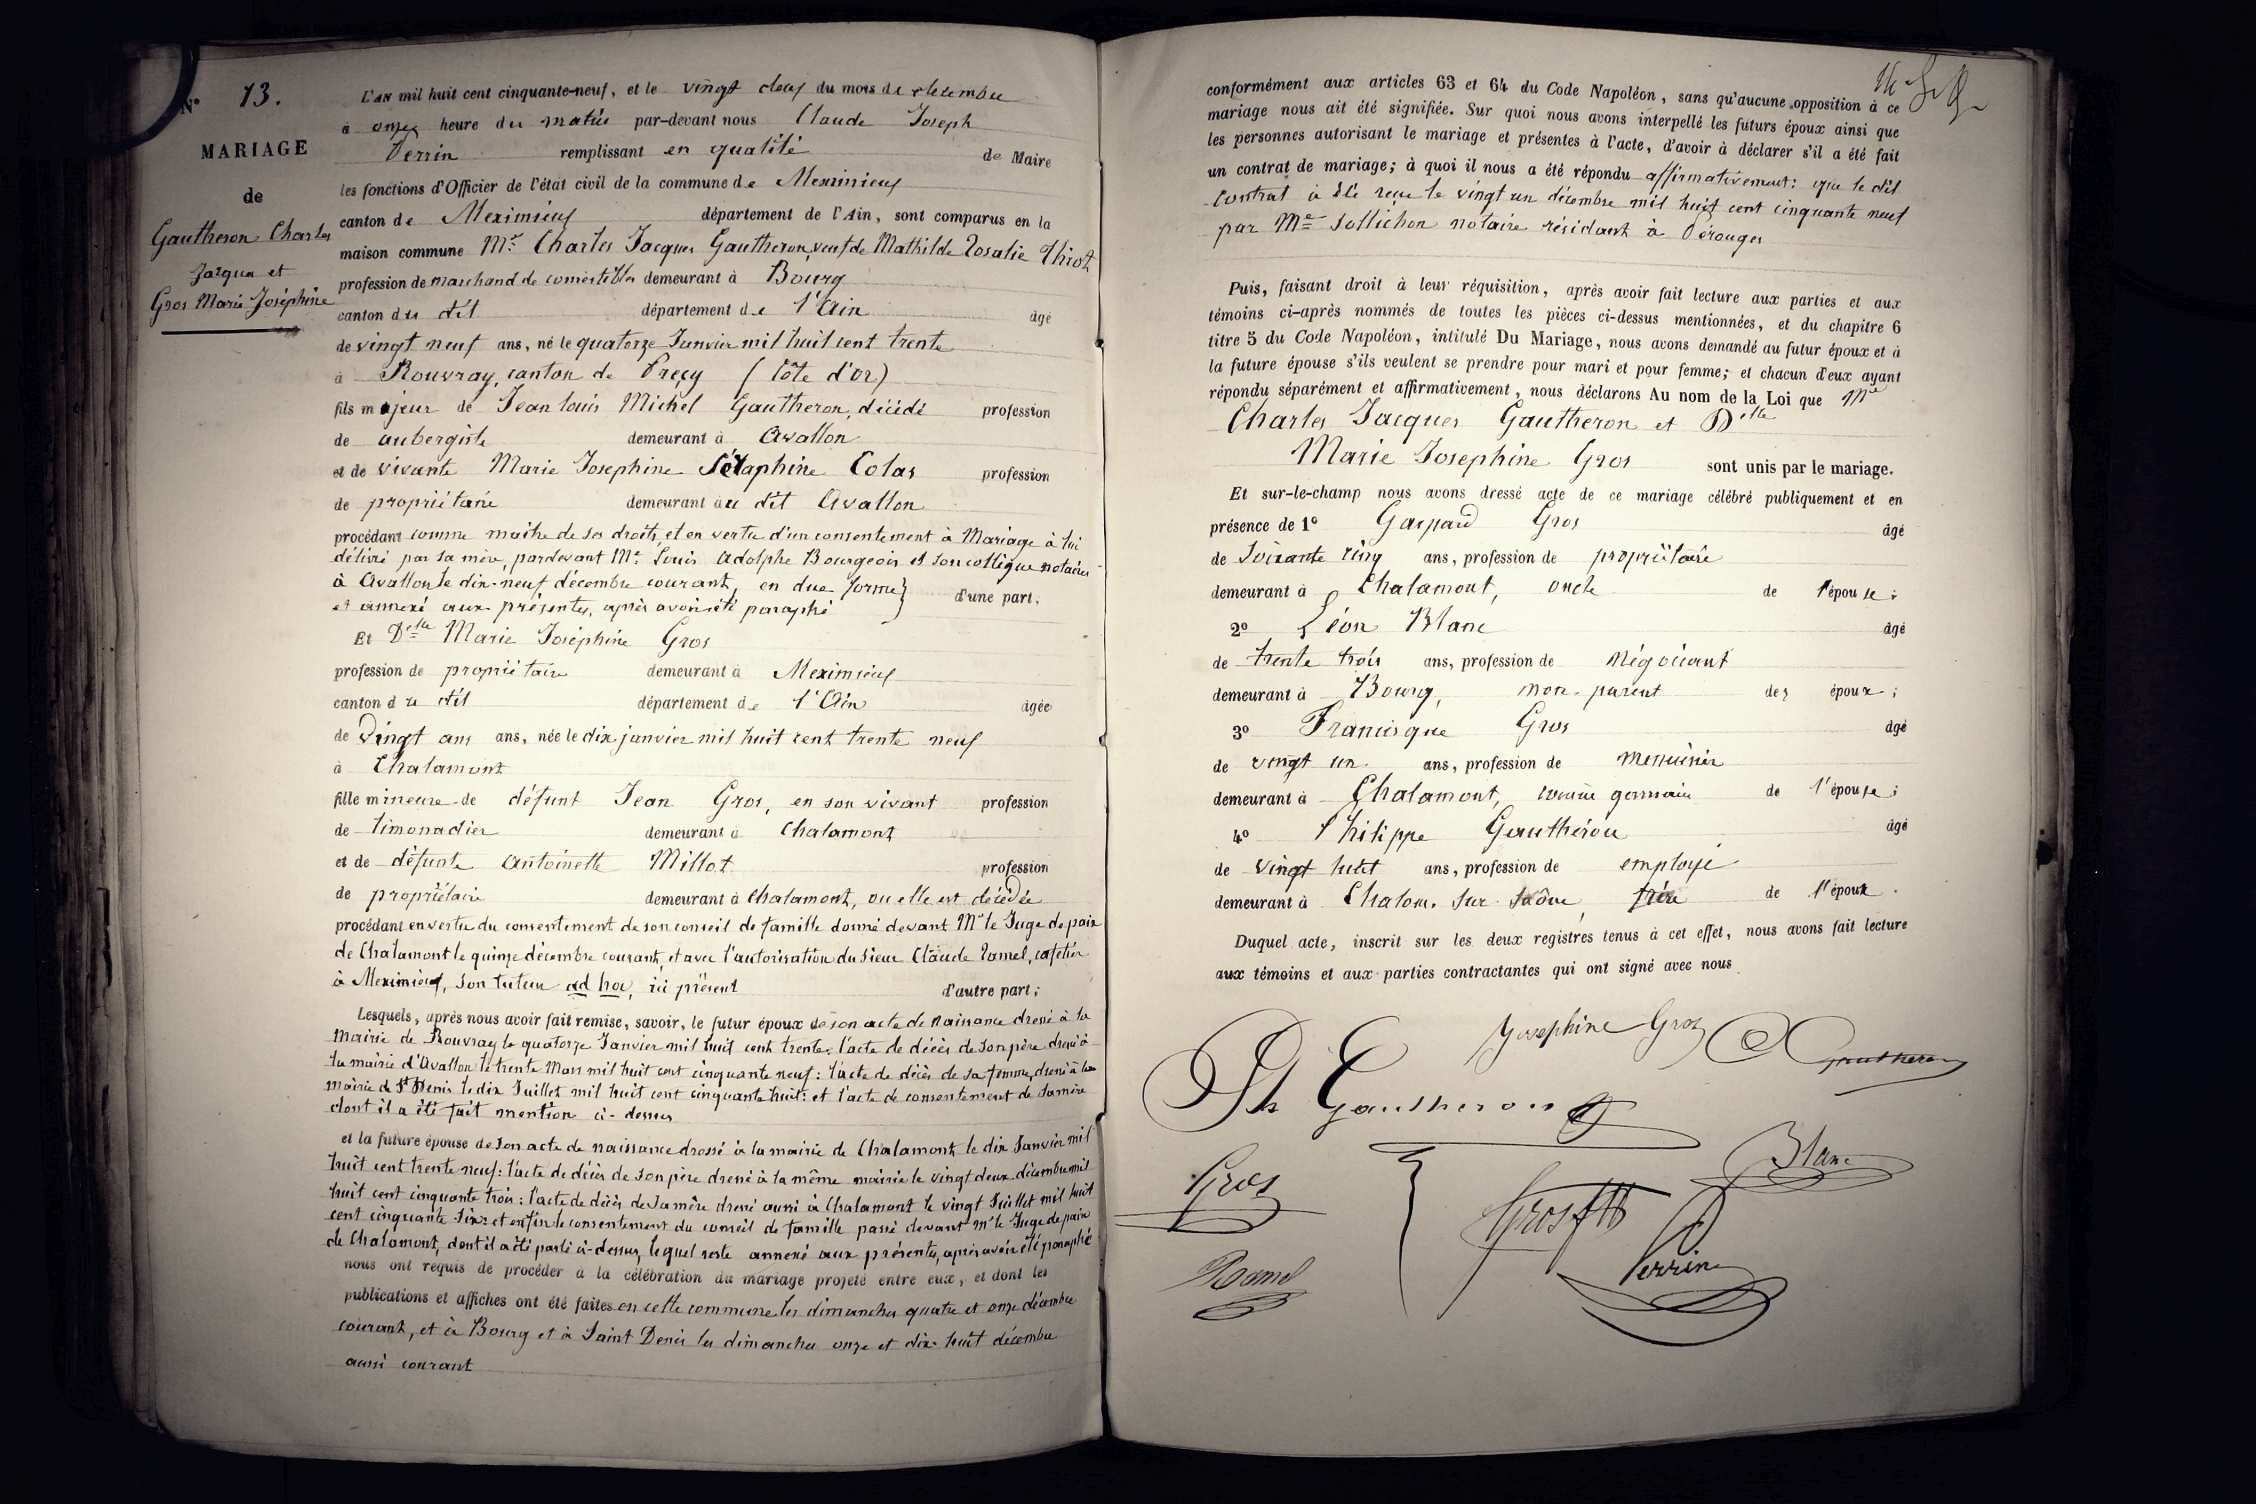 N° 13.
MARIAGE
de
Gautheron Charles
Jacques et
Gros Marie Joséphine
L'AN mil huit cent cinquante-neuf, et le vingt deux du mois de décembre
à onze heure du matin par-devant nous Claude Joseph
Perrin remplissant en qualité de Maire
les fonctions d'Officier de l'état civil de la commune de Meximieux
canton de Meximieux département de l'Ain, sont comparus en la
maison commune Mr Charles Jacques Gautheron, veuf de Mathilde Rosalie Thiot
profession de marchand de comestibles demeurant à Bourg
canton du dit département de l'Ain âgé
de vingt neuf ans, né le quatorze Janvier mil huit cent trente
à Rouvray, canton de Précy (Côte d'or)
fils majeur de Jean louis Michel Gautheron, décédé profession
de aubergiste demeurant à Avallon
et de vivante Marie Josephine Séraphine Colas profession
de propriétaire demeurant au dit Avallon
procédant comme maître de ses droits, et en vertu d'un consentement à Mariage à lui
délivré par sa mère, pardevant Me Louis Adolphe Bourgeois et son collègue notaires
à Avallon le dix-neuf décembre courant, en due forme
et annexé aux présentes, après avoir été paraphé d'une part;
Et Delle Marie Joséphine Gros
profession de propriétaire demeurant à Meximieux
canton du dit département de l'Ain âgée
de Vingt ans ans, née le dix janvier mil huit cent trente neuf
à Chalamont
fille mineure de défunt Jean Gros, en son vivant profession
de limonadier demeurant à Chalamont
et de défunte Antoinette Millot profession
de propriétaire demeurant à Chalamont, ou elle est décédée
procédant en vertu du consentement de son conseil de famille donné devant Mr le Juge de paix
de Chalamont le quinze décembre courant, et avec l'autorisation du sieur Claude Ramel, cafetier
à Meximieux, son tuteur ad hoc, ici présent d'autre part;
Lesquels, après nous avoir fait remise, savoir, le futur époux de son acte de naissance dressé à la
mairie de Rouvray le quatorze Janvier mil huit cent trente: l'acte de décès de son père dressé à
la mairie d'Avallon le trente Mars mil huit cent cinquante neuf: l'acte de décès de sa femme, dressé à la
mairie de St Denis le dix Juillet mil huit cent cinquante huit: et l'acte de consentement de sa mère
dont il a été fait mention ci-dessus
et la future épouse de son acte de naissance dressé à la mairie de Chalamont le dix Janvier mil
huit cent trente neuf: l'acte de décès de son père dressé à la même mairie le vingt deux décembre mil
huit cent cinquante trois: l'acte de décès de sa mère dressé aussi à Chalamont le vingt Juillet mil huit
cent cinquante six: et enfin le consentement du conseil de famille passé devant Mr le Juge de paix
de Chalamont, dont il a été parlé ci-dessus, lequel reste annexé aux présentes, après avoir été paraphé
nous ont requis de procéder à la célébration du mariage projeté entre eux, et dont les
publications et affiches ont été faites en cette commune les dimanches quatre et onze décembre
courant, et à Bourg et à Saint Denis les dimanches onze et dix huit décembre
aussi courant
conformément aux articles 63 et 64 du Code Napoléon, sans qu'aucune opposition à ce
mariage nous ait été signifiée. Sur quoi nous avons interpellé les futurs époux ainsi que
les personnes autorisant le mariage et présentes à l'acte, d'avoir à déclarer s'il a été fait
un contrat de mariage; à quoi il nous a été répondu affirmativement: que le dit
Contrat a été reçu le vingt un décembre mil huit cent cinquante neuf
par Me Sollichon notaire résidant à Pérouges
Puis, faisant droit à leur réquisition, après avoir fait lecture aux parties et aux
témoins ci-après nommés de toutes les pièces ci-dessus mentionnées, et du chapitre 6
titre 5 du Code Napoléon, intitulé Du Mariage, nous avons demandé au futur époux et à
la future épouse s'ils veulent se prendre pour mari et pour femme; et chacun d'eux ayant
répondu séparément et affirmativement, nous déclarons Au nom de la Loi que Mr
Charles Jacques Gautheron et Delle
Marie Josephine Gros sont unis par le mariage.
Et sur-le-champ nous avons dressé acte de ce mariage célébré publiquement et en
présence de 1° Gaspard Gros âgé
de soixante cinq ans, profession de propriétaire
demeurant à Chalamont, oncle de l'épouse;
2° Léon Blanc âgé
de trente trois ans, profession de négociant
demeurant à Bourg, non-parent des époux;
3° Francisque Gros âgé
de vingt un ans, profession de menuisier
demeurant à Chalamont, cousin germain de l'épouse;
4° Philippe Gautheron âgé
de vingt huit ans, profession de employé
demeurant à Chalon-sur-Saône frère de l'époux.
Duquel acte, inscrit sur les deux registres tenus à cet effet, nous avons fait lecture
aux témoins et aux parties contractantes qui ont signé avec nous
Josephine Gros
Gautheron
Ph Gautheron
Blanc
Gros
Gros
Perrin
Ramel